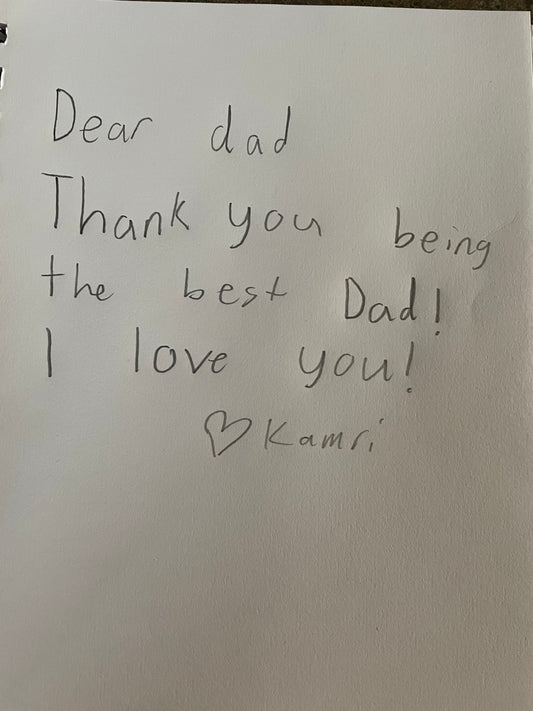 Dear dad
Thank you being
the best Dad!
I love you!
♡ Kamri